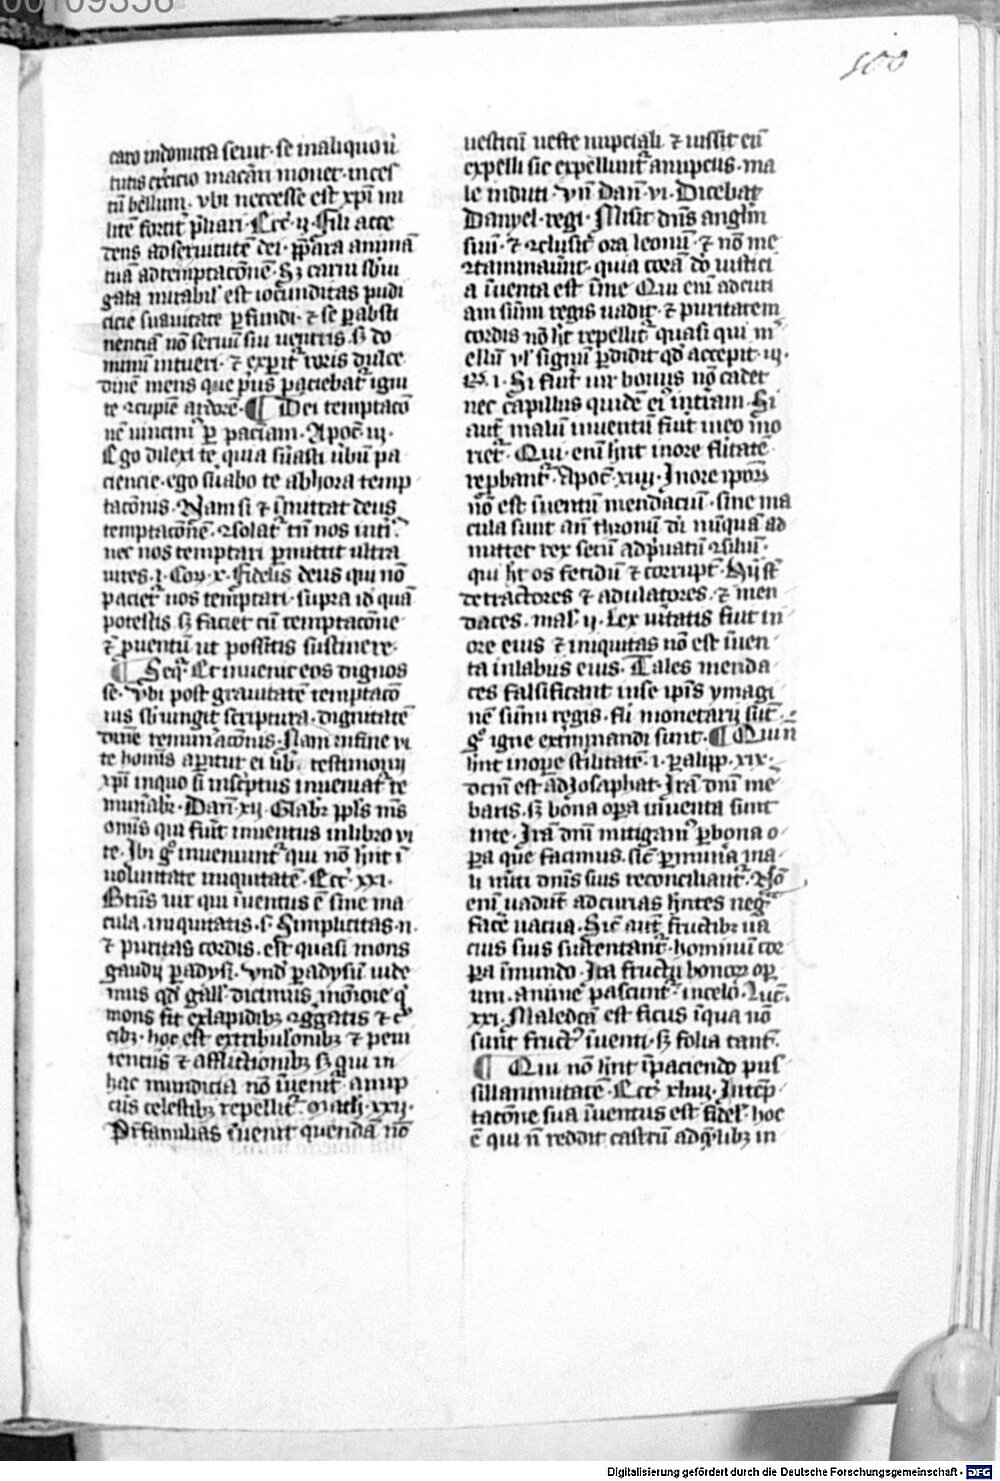 00109356
100
caro indomita seuit · se in aliquo ũ
tutis exercicio macari mouet · inces
tũ bellum · vbi necesse est xp̃i mi
litẽ fortit̃ p̃liari · Ecc̃ · ij · Fili acce
dens ad seruitutẽ dei · p̃para animã
tuã ad temptacõnẽ · Sꝫ carni
gata mirabil̃ est iocunditas pudi
cicie suauitate ꝑfundi · ⁊ se ꝑ absti
nenciã nõ seruũ siu uentris · sꝫ do
minũ intueri · ⁊ exꝑit̃ roris dulce
dinẽ mens que p̃us paciebat̃ igni
te ardorẽ · ¶ Dei temptacõ
nẽ uincim̃ ꝑ paciam · Apoc̃ iij ·
Ego dilexi te quia s̃uasti ũbũ pa
ciencie · ego s̃uabo te ab hora temp
tacõnis · Nam si ⁊ ĩmittat deus
temptacõnẽ · ꝯsolat̃ tñ nos
nec nos temptari ꝑmittit ultra
uires · j · Cor̃ · x · Fidelis deus qui nõ
paciet̃ uos temptari · supra id quã
potestis sꝫ faciet cũ temptacõne
⁊ ꝓuentũ ut possitis sustinere ·
¶ Seq̃ Et inuenit eos dignos
se · Vbi post grauitatẽ temptacõ
nis sbiungit scriptura · dignitatẽ
diuinẽ remun̾acõnis · Nam in fine vi
te hominis aꝑitur ei lib̃ testimonij
xp̃i in quo si insc̾ptus inueniat̃ re
mun̾abr̃ · Dañ xij · Saluabr̃ ppl̃s m̃s
om̃is qui fuit inuentus in libro vi
te · Ibi g̃ inueniunt̃ qui nõ h̃nt ĩ
uoluntate iniquitatẽ · Ecc̃ · xxi ·
Btũs uir qui ĩuentus ẽ sine ma
cula · iniquitatis · s · Simplicitas · n ·
⁊ puritas cordis · est quasi mons
gaudij paradysi · Vnd̃ paradysũ uide
mus qd̃ gall̃ dicimus
mons fit ex lapidibꝫ aggegatis ⁊
cibꝫ · hoc est ex tribulõnibꝫ ⁊ peni
tentiis ⁊ afflictionibꝫ sꝫ qui in
hac mundicia nõ ĩuenit̃ a nup
ciis celestibꝫ repellit̃ · Math · xxij ·
Pr̃familias ĩuenit quendã nõ
uestitũ ueste nupciali ⁊ iussit eũ
expelli sic expellunt̃ a nupciis · ma
le induti · Vñ Dañ · vi · Dicebat
Danyel · regi · Misit dñs anglm̃
suũ · ⁊ ꝯclusit ora leonũ · ⁊ nõ me
ꝯtaminauer̃nt · quia corã do iustici
a ĩuenta est ĩ me Qui eni ad curi
am sũmi regis uadit · ⁊ puritatem
cordis nõ h̃t repellit̃ quasi qui
ellũ vl̃ signũ ꝑdidit qd̃ accepit · iij ·
R̃ · i · Si fuit̃ uir bonus nõ cadet
nec capillus quidẽ ei̾ in t̃ram · Si
aut̃ malũ inuentũ fuit̃ in eo mo
riet̃ · Qui · eni h̃nt in ore flitatẽ
rep̃bant̃ · Apoc̃ · xiiij · In ore ipor̃
nõ est ĩuentũ mendaciũ · sine ma
cula sunt añ thronũ dĩ nũquã ad
mittet rex secũ ad p̃uatũ ꝯsiliũ ·
qui h̃t os fetidũ ⁊ corrupt̃ · Hij st̃
detractores ⁊ adulatores · ⁊ men
daces · mal̃ · ij · Lex ũitatis fuit in
ore eius ⁊ iniquitas nõ est ĩuen
ta in labiis eius · Tales menda
ces falsificant in se ip̃is ymagi
nẽ sũmi regis · fl̃i monetarij sũt
g̃ igne exẽmandi sunt · ¶ Qui ñ
h̃nt in oꝑe st̾ilitatẽ · i · ꝑalipp · xix ·
Dcm̃ est ad Josaphat · Iram dñi me
baris · sꝫ bona oꝑa ĩuenta sunt
in te · Iram dñi mitigam̃ ꝑ bona o
ꝑa que facimus · sic̃ ꝑ mun̾a ma
li ministri dñis suis reconciliant̃ · Nõ
eni uadũt̃ ad curias h̃ntes neg̃
facẽ uacua · Sic̃ aut̃ fructibꝫ ua
riis suis sustentant̃ · hominũ cor
ꝑa ĩ mundo · Ita fructu bonor̃ oꝑ
um · anime pascunt̃ · in celo · Luc̃ ·
xxi · Maledcã est ficus ĩ qua nõ
sunt fruct̃ ĩuenti · sꝫ folia tant̃ ·
¶ Qui nõ h̃nt ĩ paciendo pus
sillanimitatẽ · Ecc̃ xliiij · In temp
tacõne sua ĩuentus est fidel̃ · hoc
ẽ qui ñ reddit castrũ ad q̃libꝫ in
Digitalisierung gefördert durch die Deutsche Forschungsgemeinschaft - DFG